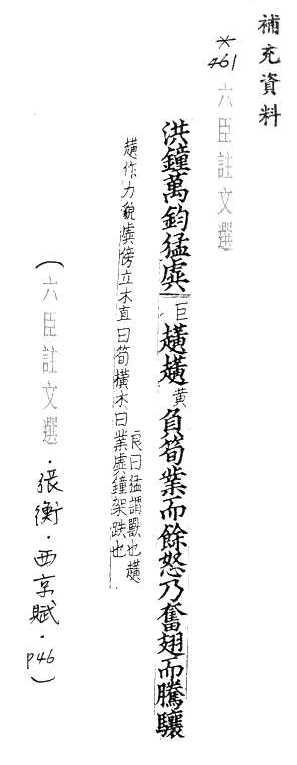 補充資料
*461 六臣註文選
洪鐘萬鈞猛虡巨趪趪黃負筍業而餘怒乃奮翅而騰驤
良曰猛謂獸也趪
趪作力貌虡傍立木直曰筍橫木曰業虡鐘架趺也
(六臣註文選・張衡・西京賦・P46)